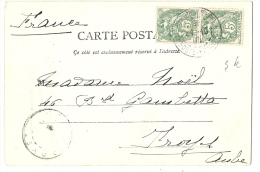 France
CARTE POSTALE
Ce côté est exclusivement réservé à l'adresse
Madame Noël
46 Bd Gambetta
Troyes
Aube